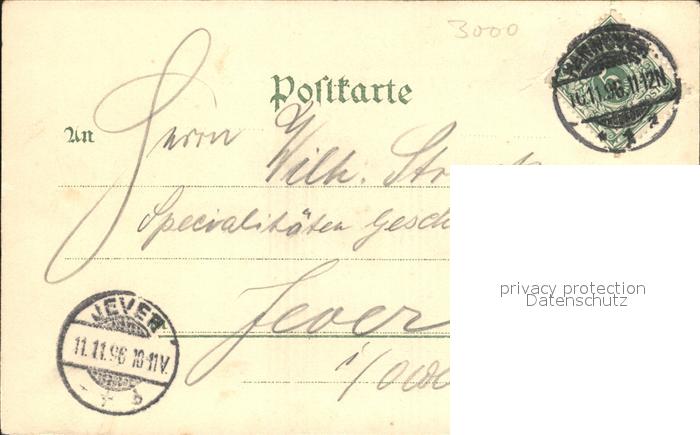 3000
HANNOVER
10.11.96.11-12N.
* 1 z
Postkarte
An
Herrn
Wilh.
Specialitäten Gesch
privacy protection
Datenschutz
JEVER
11.11.96 10-11V.
* b
Jever
i/Old